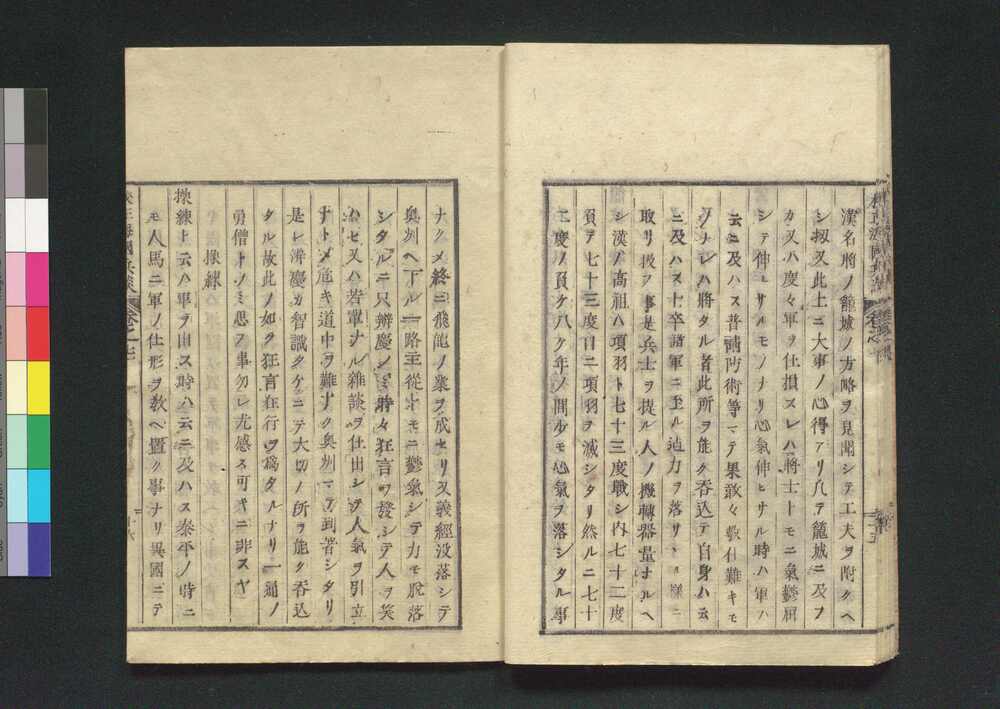 漢名將ノ籠城ノ方略ヲ見聞シテ工夫ヲ附クヘ
シ扨又此上ニ大事ノ心得アリ凡テ籠城ニ及フ
カ又ハ度々軍ヲ仕損スレハ將士トモニ氣鬱屈
シテ伸ヒサルモノナリ心氣伸ヒサル時ハ軍ハ
云ニ及ハス普請防術等マテ果敢々敷仕難キモ
ノナレハ將タル者此所ヲ能ク呑込テ自身ハ云
ニ及ハス士卒諸軍ニ至ル迠力ヲ落サヽル様ニ
取リ扱フ事是兵士ヲ提ル人ノ機轉器量ナルヘ
シ漢ノ高祖ハ項羽ト七十三度戰シ内七十二度
負テ七十三度目ニ項羽ヲ滅シタリ然ルニ七十
二度ノ負ケ八ケ年ノ間少モ心氣ヲ落シタル事
ナクメ終ニ飛龍ノ業ヲ成セリ又義經没落シテ
奥州ヘ下ル一路主從トモニ鬱氣シテ力モ脱落
シタルニ只辨慶ノミ時々狂言ヲ發シテ人ヲ笑
ハセ又ハ若輩ナル雜談ヲ仕出シテ人氣ヲ引立
ナトメ危キ道中ヲ難ナク奥州マテ到著シタリ
是レ辨慶カ智識タケニテ大切ノ所ヲ能ク呑込
タル故此ノ如ク狂言狂行ヲ爲タルナリ一通ノ
勇僧トノミ思フ事勿レ尤感ス可キニ非スヤ
操練
操練ト云ハ軍ヲ出ス時ハ云ニ及ハス泰平ノ時ニ
モ人馬ニ軍ノ仕形ヲ教ヘ置ク事ナリ異國ニテ